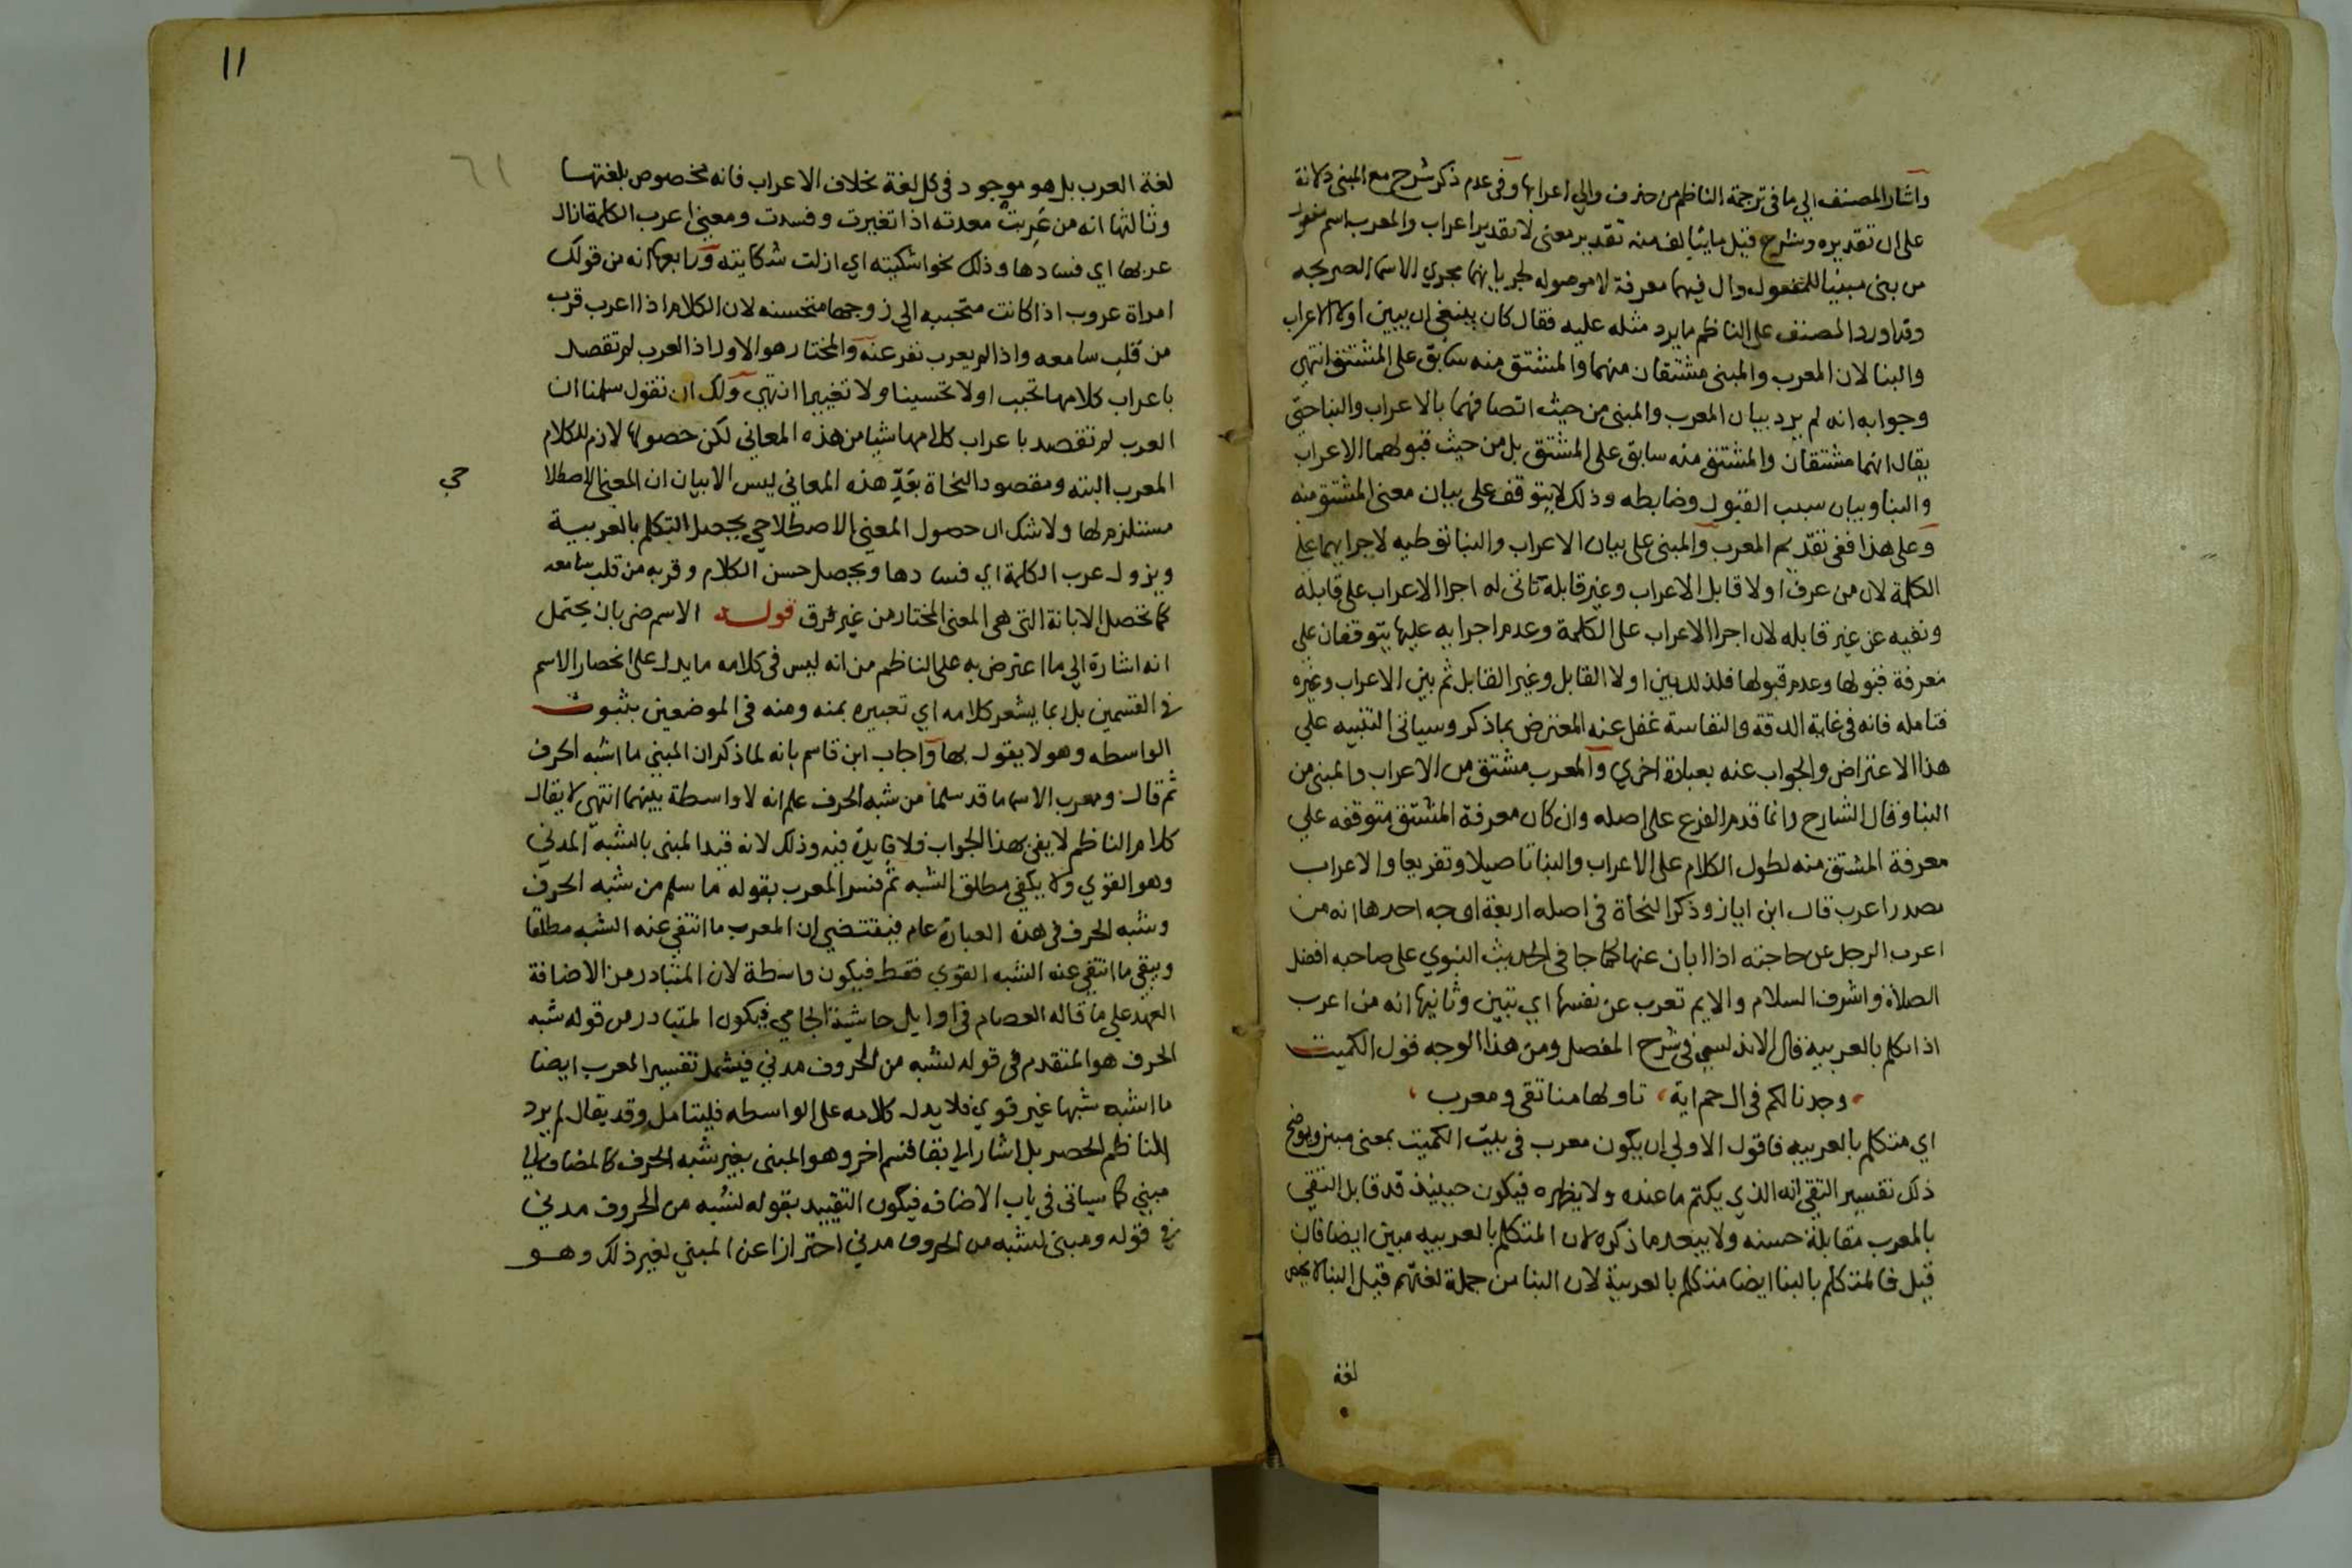 واشار المصنف الي ما في ترجمة الناظم من حذف والي اعرابها وفي عدم ذكر شرح مع المبنى دلالة
على ان تقديره وشرح قبل ما يتالف منه تقدير معنى لا تقدير اعراب والمعرب اسم مفعول
من بنى مبنيا للمفعول وال فيهما معرفة لا موصوله لجريانهما مجري الاسما الصريحه
وقد اورد المصنف على الناظم ما يرد مثله عليه فقال كان ينبغي ان يبين اولا الاعراب
والبنا لان المعرب والمبنى مشتقان منهما والمشتق منه سابق على المشتق انتهي
وجوابه انه لم يرد بيان المعرب والمبنى من حيث اتصافهما بالاعراب والبنا حتي
يقال انهما مشتقان والمشتق منه سابق على المشتق بل من حيث قبولهما الاعراب
والبنا وبيان سبب القبول وضابطه وذلك لا يتوقف على بيان معنى المشتق منه
وعلى هذا ففي تقديم المعرب والمبنى على بيان الاعراب والبنا توطيه لاجرايهما على
الكلمة لان من عرف اولا قابل الاعراب وغير قابله تاتى له اجرا الاعراب على قابله
ونفيه عن غير قابله لان اجرا الاعراب على الكلمة وعدم اجرايه عليها يتوقفان على
معرفة قبولها وعدم قبولها فلذلك بين اولا القابل وغير القابل ثم بين الاعراب وغيره
فتامله فانه في غاية الدقة والنفاسة غفل عنه المعترض بما ذكر وسياتى التنبيه علي
هذا الاعتراض والجواب عنه بعبارة اخري والمعرب مشتق من الاعراب والمبنى من
البنا وقال الشارح وانما قدم الفرع على اصله وان كان معرفة المشتق متوقفه علي
معرفة المشتق منه لطول الكلام على الاعراب والبنا تاصيلا وتفريعا والاعراب
مصدر اعرب قال ابن اياز وذكر النحاة في اصله اربعة اوجه احدها انه من
اعرب الرجل عن حاجته اذا ابان عنها كما جا في الحديث النبوي على صاحبه افضل
الصلاة واشرف السلام والايم تعرب عن نفسها اي تبين وثانيها انه من اعرب
اذا تكلم بالعربيه قال الاندلسي في شرح المفصل ومن هذا الوجه قول الكميت
وجدنا لكم في ال حم اية ، تاولها منا تقى ومعرب ،
اي متكلم بالعربيه فاقول الاولى ان يكون معرب في بيت الكميت بمعنى مبين ويوضح
ذلك تفسير التقي انه الذي يكتم ما عنده ولا يظهره فيكون حينيذ قد قابل التقي
بالمعرب مقابلة حسنه ولا يبعد ما ذكره لان المتكلم بالعربيه مبين ايضا فان
قيل فالمتكلم بالبنا ايضا متكلم بالعربية لان البنا من جملة لغتهم قيل البنا لا يخص
لغة
11
٦١
لغة العرب بل هو موجود في كل لغة بخلاف الاعراب فانه مخصوص بلغتها
وثالثها انه من عَرِبتْ معدته اذا تغيرت وفسدت ومعنى اعرب الكلمة ازال
عربها اي فسادها وذلك نحو اشكيته اي ازلت شكايته ورابعها انه من قولك
امراة عروب اذا كانت متحببه الي زوجها متحسنه لان الكلام اذا اعرب قرب
من قلب سامعه واذا لم يعرب نفر عنه والمختار هو الاول اذ العرب لم تقصد
باعراب كلامها تحببا ولا تحسينا ولا تغييرا انتهي ولك ان تقول سلمنا ان
العرب لم تقصد باعراب كلامها شيا من هذه المعاني لكن حصولها لازم للكلام
المعرب البته ومقصود النحاة بعَدِّ هذه المعاني ليس الا بيان ان المعنى الاصطلا
حي
مستلزم لها ولا شك ان حصول المعنى الاصطلاحي يحصل التكلم بالعربية
ويزول عرب الكلمة اي فسادها ويحصل حسن الكلام وقربه من قلب سامعه
كما تحصل الابانة التى هى المعنى المختار من غير فرق قوله الاسم ضربان يحتمل
انه اشارة الي ما اعترض به على الناظم من انه ليس في كلامه ما يدل على انحصار الاسم
في القسمين بل ربما يشعر كلامه اي تعبيره بمنه ومنه في الموضعين بثبوت
الواسطه وهو لا يقول بها واجاب ابن قاسم بانه لما ذكر ان المبني ما اشبه الحرف
ثم قال ومعرب الاسما ما قد سلما من شبه الحرف علم انه لا واسطة بينهما انتهى لا يقال
كلام الناظم لا يفي بهذا الجواب فلا فايدة فيه وذلك لانه قيد المبنى بالشبه المدني
وهو القوي ولا يكفي مطلق الشبه ثم فسر المعرب بقوله ما سلم من شبه الحرف
وشبه الحرف في هذه العبارة عام فيقتضي ان المعرب ما انتفي عنه الشبه مطلقا
ويبقى ما انتفي عنه الشبه القوي فقط فيكون واسطة لان المتبادر من الاضافة
العهد على ما قاله العصام في اوايل حاشية الجامي فيكون المتبادر من قوله شبه
الحرف هو المتقدم في قوله لشبه من الحروف مدني فيشمل تفسير المعرب ايضا
ما اشبه شبها غير قوي فلا يدل كلامه على الواسطه فليتامل وقد يقال لم يرد
الناظم الحصر بل اشار الي بقا قسم اخر وهو المبنى بغير شبه الحرف كالمضاف الي
مبني كما سياتى في باب الاضافه فيكون التقييد بقوله لشبه من الحروف مدني
في قوله ومبنى لشبه من الحروف مدني احترازا عن المبني لغير ذلك وهو